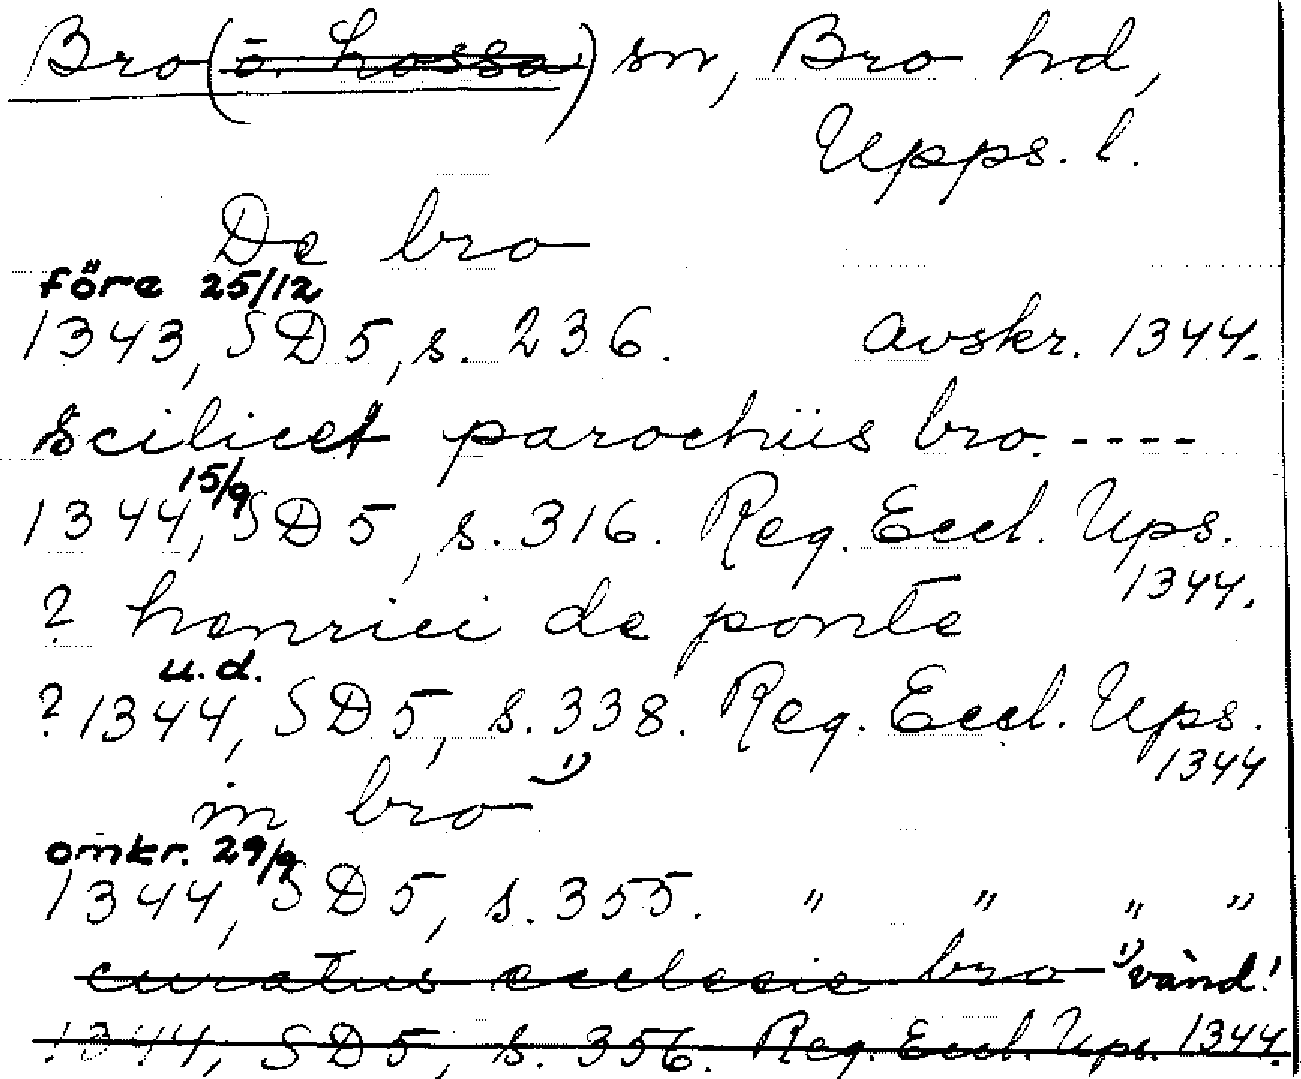 Bro (o. Lossa) sn, Bro hd,
Upps. l.
De bro
före 25/12
1343, SD 5, s. 236. Avskr. 1344.
Scilicet parochiis bro. ----
15/9
1344, SD 5, s. 316. Reg. Eccl. Ups.
1344.
? henrici de ponte
u.d.
? 1344, SD 5, s. 338. Reg. Eccl. Ups.
1344
in bro 1)
omkr. 29/9
1344, SD 5, s. 355. " " " "
curatus ecclesie bro 1) vänd!
1344, SD 5, s. 356. Reg. Eccl. Ups. 1344.